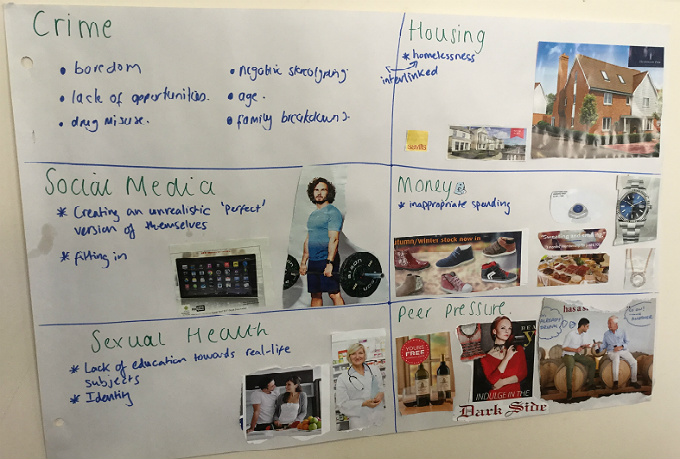 Crime
• boredom
• lack of opportunities.
• drug misuse.
• negative
• age.
• family breakdowns.
Housing
* homelessness
interlinked
savills
Social Media
* Creating an unrealistic 'perfect'
version of themselves
* fitting in
Money
* inappropriate spending
utumn/Winter stock now in
Sexual Health
* Lack of education towards real-life
subjects
* Identity
Peer Pressure
has a s
YOURS
FREE
INDULGE IN THE
Dark Side